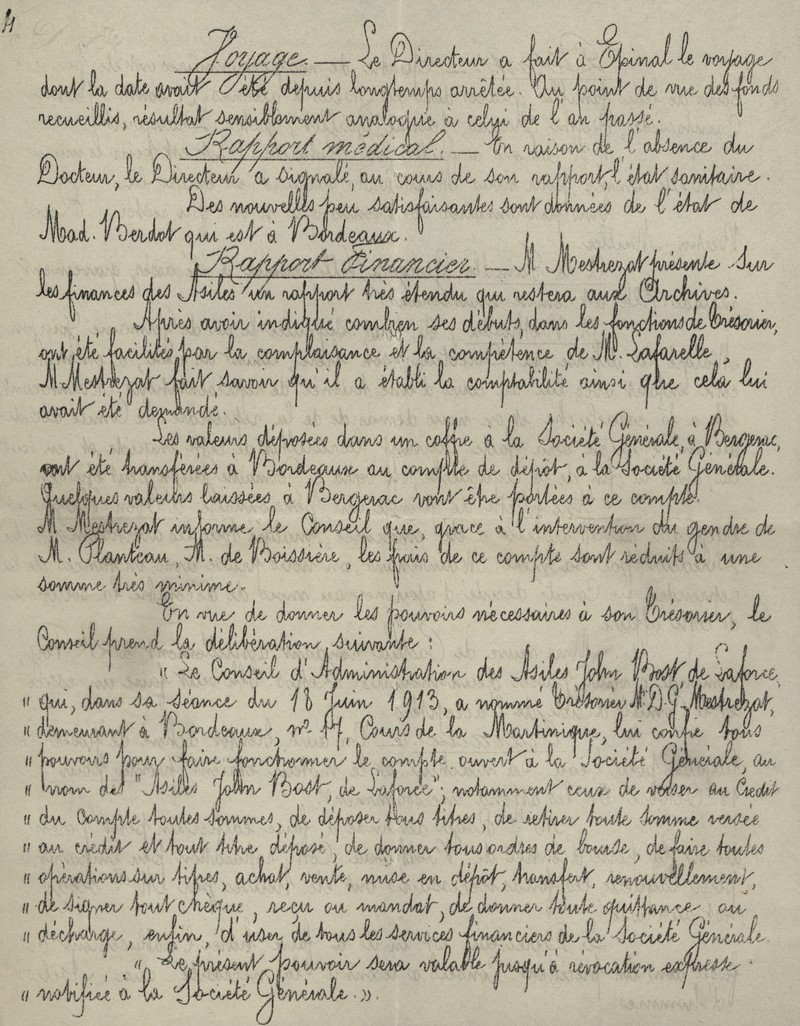 4
Voyage. — Le Directeur a fait à Epinal le voyage
dont la date avait été depuis longtemps arrêtée. Au point de vue des fonds
recueillis, résultat sensiblement analogue à celui de l'an passé.
Rapport médical. — En raison de l'absence du
Docteur, le Directeur a signalé, au cours de son rapport, l'état sanitaire.
Des nouvelles peu satisfaisantes sont données de l'état de
Mad. Berdot qui est à Bordeaux.
Rapport Financier — M Mestrezat présente sur
les finances des Asiles un rapport très étendu qui restera aux Archives.
Après avoir indiqué combien ses débuts, dans les fonctions de Trésorier,
ont été facilités par la complaisance et la compétence de M. Lafarelle,
M Mestrezat fait savoir qu'il a établi la comptabilité ainsi que cela lui
avait été demandé.
Les valeurs déposées dans un coffre à la Société Générale, à Bergerac,
ont été transférées à Bordeaux au compte de dépôt, à la Société Générale.
Quelques valeurs laissées à Bergerac vont être portées à ce compte.
M Mestrezat informe le Conseil que, grace à l'intervention du gendre de
M. Planteau, M. de Boissière, les frais de ce compte sont réduits à une
somme très minime.
En vue de donner les pouvoirs nécessaires à son Trésorier, le
Conseil prend la délibération suivante :
" Le Conseil d'Administration des Asiles John Bost de Laforce,
" qui, dans sa séance du 18 Juin 1913, a nommé Trésorier M. D. G. Mestrezat,
" demeurant à Bordeaux, nº 17, Cours de la Martinique, lui confie tous
" pouvoirs pour faire fonctionner le compte ouvert à la Société Générale, au
" nom des "Asiles John Bost, de Laforce"; notamment ceux de verser au Crédit
" du Compte toutes sommes, de déposer tous titres, de retirer toute somme versée
" au crédit et tout titre déposé, de donner tous ordres de bourse, de faire toutes
" opérations sur titres, achat, vente, mise en dépôt, transfert, renouvellement,
" de signer tout chèque, reçu ou mandat, de donner toute quittance ou
" décharge, enfin, d'user de tous les services financiers de la Société Générale.
" Le présent pouvoir sera valable jusqu'à révocation expresse
" notifiée à la Société Générale. ».